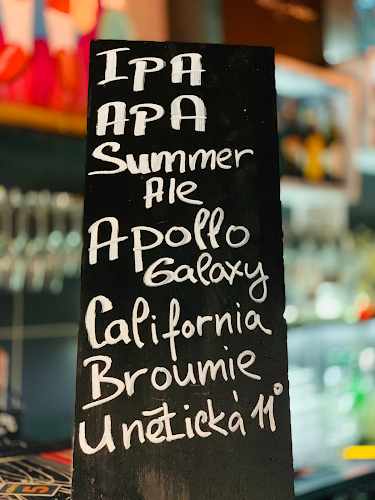 IPA
APA
Summer
Ale
Apollo
Galaxy
California
Broumie
Unětická 11°